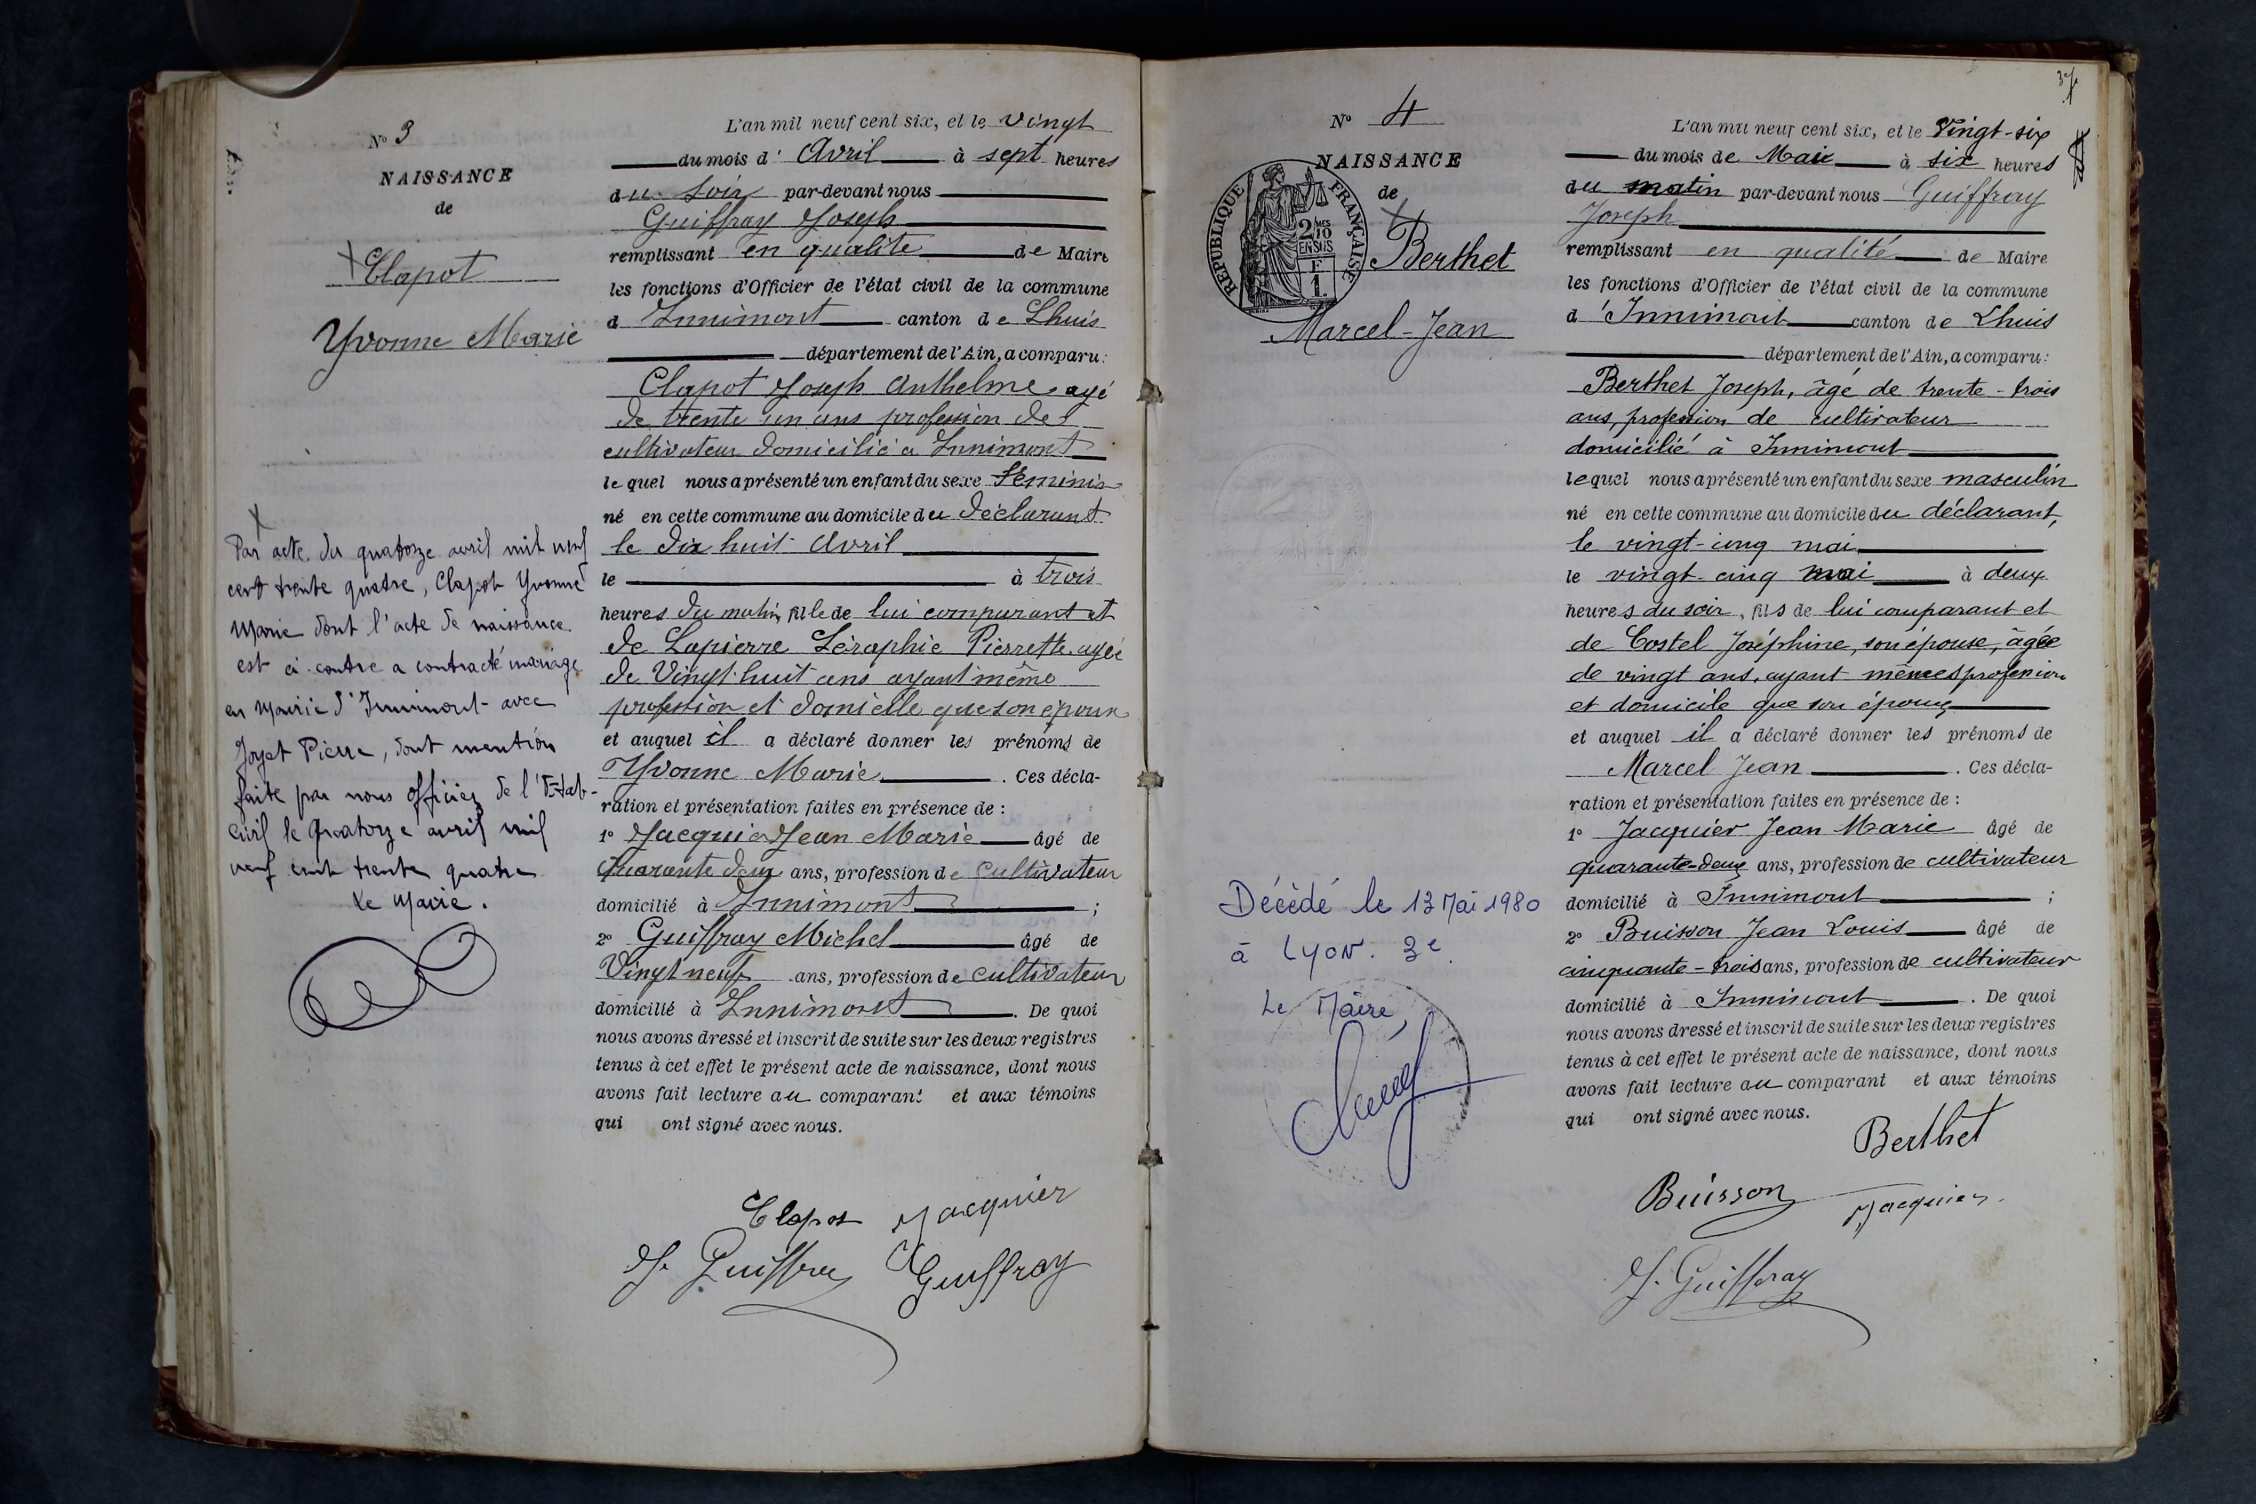 N° 3
NAISSANCE
de
Clapot
Yvonne Marie
Par acte du quatorze avril mil neuf
cent trente quatre, Clapot Yvonne
Marie dont l'acte de naissance
est ci-contre a contracté mariage
en Mairie d'Innimont avec
Joyet Pierre, dont mention
faite par nous officier de l'Etat-
civil le Quatorze avril mil
neuf cent trente quatre
Le Maire.
L'an mil neuf cent six, et le vingt
du mois d' Avril à sept heures
du soir par-devant nous
Guiffray Joseph
remplissant en qualité de Maire
les fonctions d'Officier de l'état civil de la commune
d Innimont canton de Lhuis
département de l'Ain, a comparu:
Clapot Joseph Anthelme agé
de trente un ans profession de
cultivateur domicilié à Innimont
le quel nous a présenté un enfant du sexe Féminin
né en cette commune au domicile du déclarant
le dix huit Avril
le à trois
heures du matin, fille de lui comparant et
de Lapierre Séraphie Pierrette agée
de Vingt-huit ans ayant même
profession et domicile que son époux
et auquel il a déclaré donner les prénoms de
Yvonne Marie. Ces décla-
ration et présentation faites en présence de :
1° Jacquier Jean Marie âgé de
Quarante deux ans, profession de cultivateur
domicilié à Innimont ;
2° Guiffray Michel âgé de
Vingt neuf ans, profession de cultivateur
domicilié à Innimont. De quoi
nous avons dressé et inscrit de suite sur les deux registres
tenus à cet effet le présent acte de naissance, dont nous
avons fait lecture au comparant et aux témoins
qui ont signé avec nous.
Clapot Jacquier
J. Guiffray Guiffray
N° 4
NAISSANCE
de
RÉPUBLIQUE FRANÇAISE
2/10 EN SUS
F
1
Berthet
Marcel-Jean
Décédé le 13 Mai 1980
à Lyon. 3e.
Le Maire,
L'an mil neuf cent six, et le Vingt-six
du mois de Mai à six heures
du matin par-devant nous Guiffray
Joseph
remplissant en qualité de Maire
les fonctions d'Officier de l'état civil de la commune
d'Innimont canton de Lhuis
département de l'Ain, a comparu:
Berthet Joseph, âgé de trente-trois
ans, profession de cultivateur
domicilié à Innimont
lequel nous a présenté un enfant du sexe masculin
né en cette commune au domicile du déclarant,
le vingt-cinq mai
le vingt-cinq mai à deux
heures du soir, fils de lui comparant et
de Costel Joséphine, son épouse, âgée
de vingt ans, ayant mêmes profession
et domicile que son époux
et auquel il a déclaré donner les prénoms de
Marcel Jean. Ces décla-
ration et présentation faites en présence de :
1° Jacquier Jean Marie âgé de
quarante-deux ans, profession de cultivateur
domicilié à Innimont ;
2° Buisson Jean Louis âgé de
cinquante-trois ans, profession de cultivateur
domicilié à Innimont. De quoi
nous avons dressé et inscrit de suite sur les deux registres
tenus à cet effet le présent acte de naissance, dont nous
avons fait lecture au comparant et aux témoins
qui ont signé avec nous.
Berthet
Buisson Jacquier
J. Guiffray